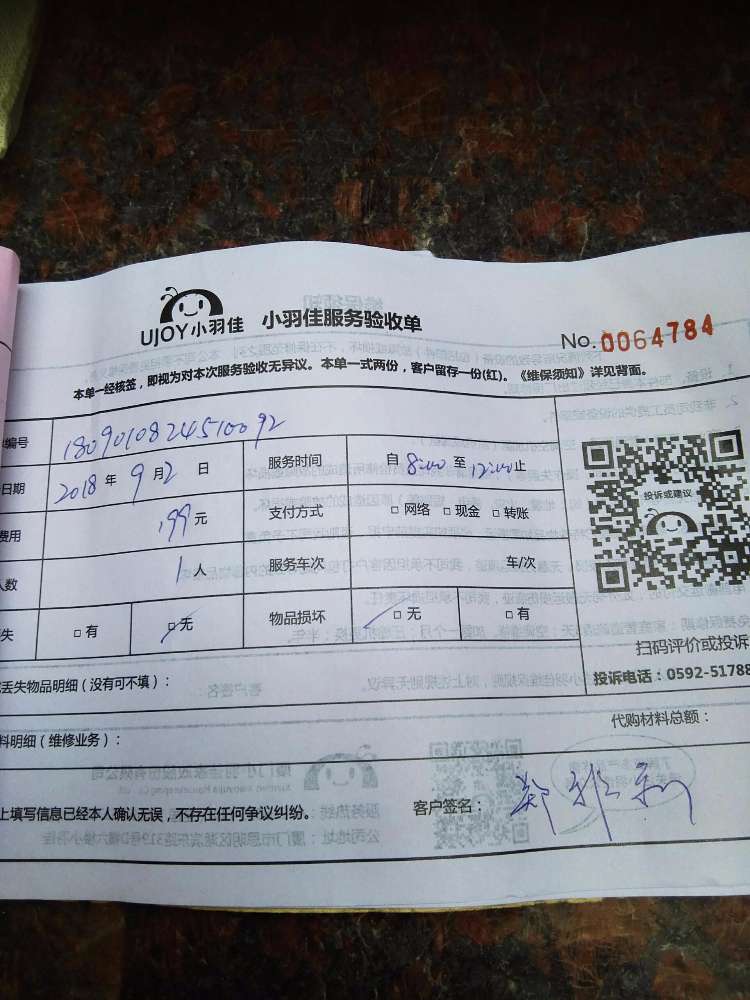 UJOY小羽佳 小羽佳服务验收单
No.0064784
本单一经核签，即视为对本次服务验收无异议。本单一式两份，客户留存一份(红)。《维保须知》详见背面。
编号 1809010824510092
日期 2018 年 9 月 2 日 服务时间 自 8:00 至 12:00 止
费用 199 元 支付方式 □ 网络 □ 现金 □ 转账
人数 1 人 服务车次 车/次
失 □ 有 □ 无 物品损坏 □ 无 □ 有
投诉或建议
扫码评价或投诉
投诉电话：0592-51788
丢失物品明细（没有可不填）：
代购材料总额：
料明细（维修业务）：
上填写信息已经本人确认无误，不存在任何争议纠纷。
客户签名：